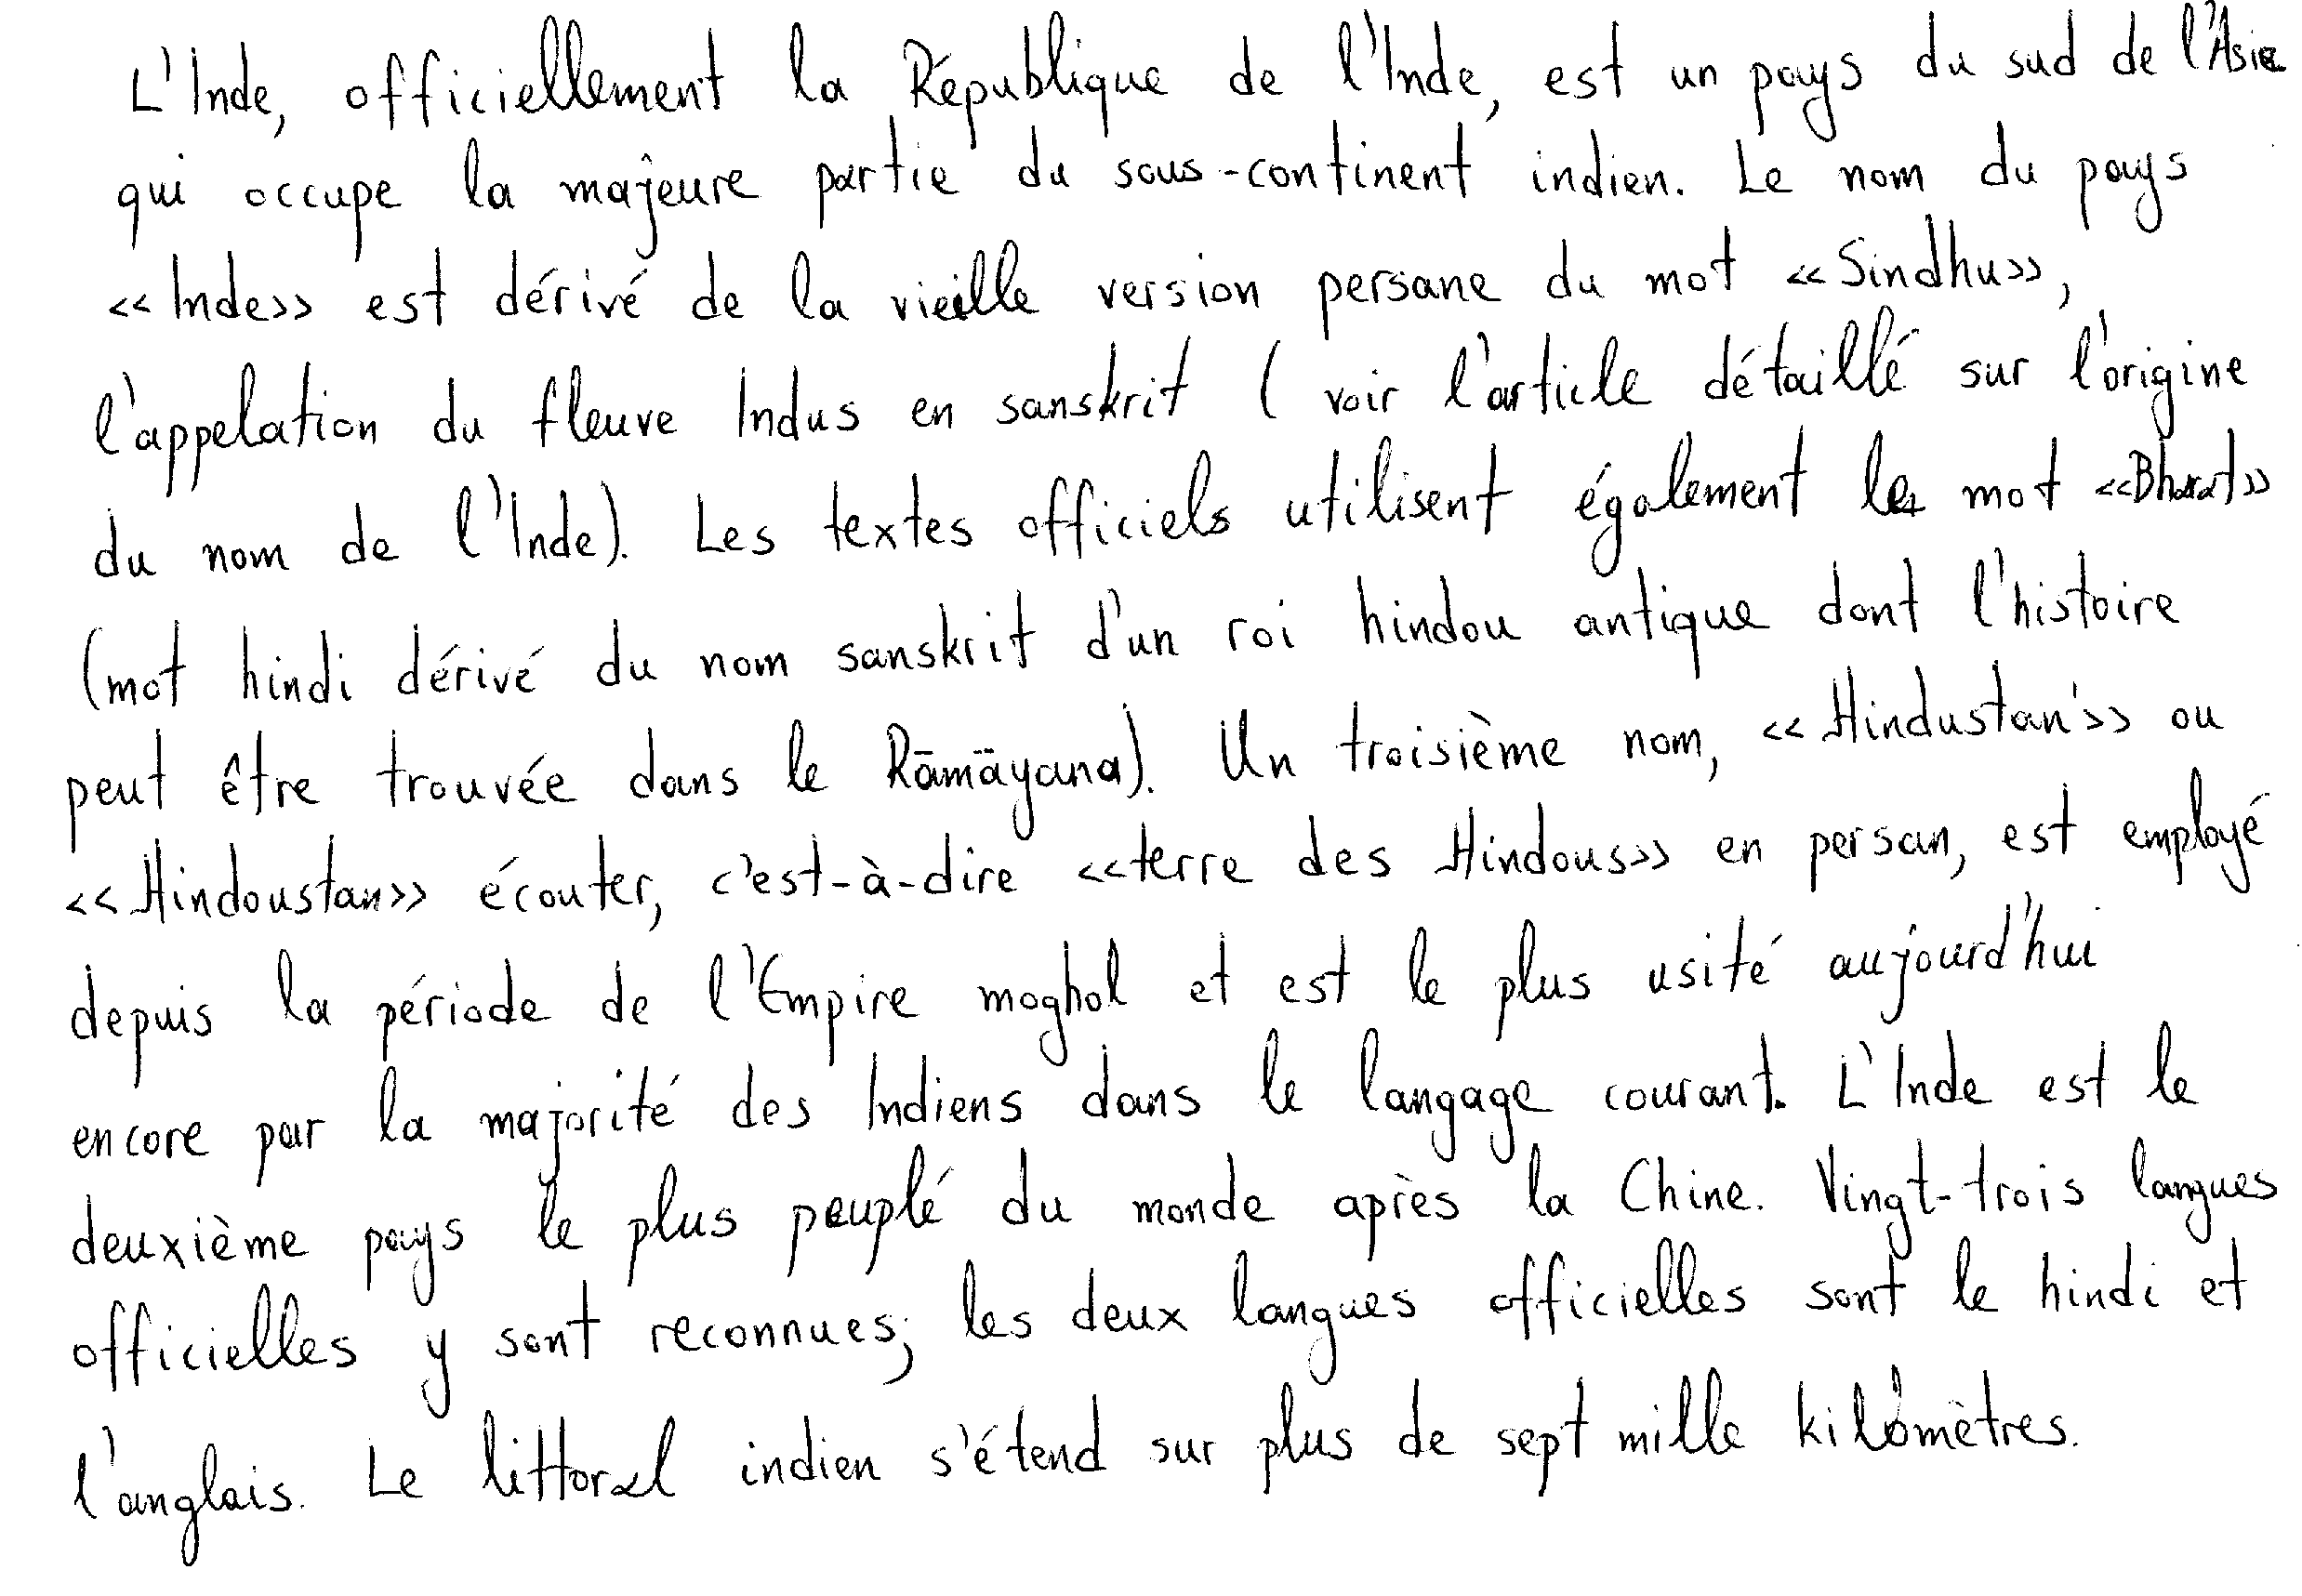 L'Inde, officiellement la République de l'Inde, est un pays du sud de l'Asie
qui occupe la majeure partie du sous-continent indien. Le nom du pays
«Inde» est dérivé de la vieille version persane du mot «Sindhu»,
l'appelation du fleuve Indus en sanskrit (voir l'article détaillé sur l'origine
du nom de l'Inde). Les textes officiels utilisent également le mot «Bharat»
(mot hindi dérivé du nom sanskrit d'un roi hindou antique dont l'histoire
peut être trouvée dans le Rāmāyana). Un troisième nom, «Hindustan» ou
«Hindoustan» écouter, c'est-à-dire «terre des Hindous» en persan, est employé
depuis la période de l'Empire moghol et est le plus usité aujourd'hui
encore par la majorité des Indiens dans le langage courant. L'Inde est le
deuxième pays le plus peuplé du monde après la Chine. Vingt-trois langues
officielles y sont reconnues; les deux langues officielles sont le hindi et
l'anglais. Le littoral indien s'étend sur plus de sept mille kilomètres.